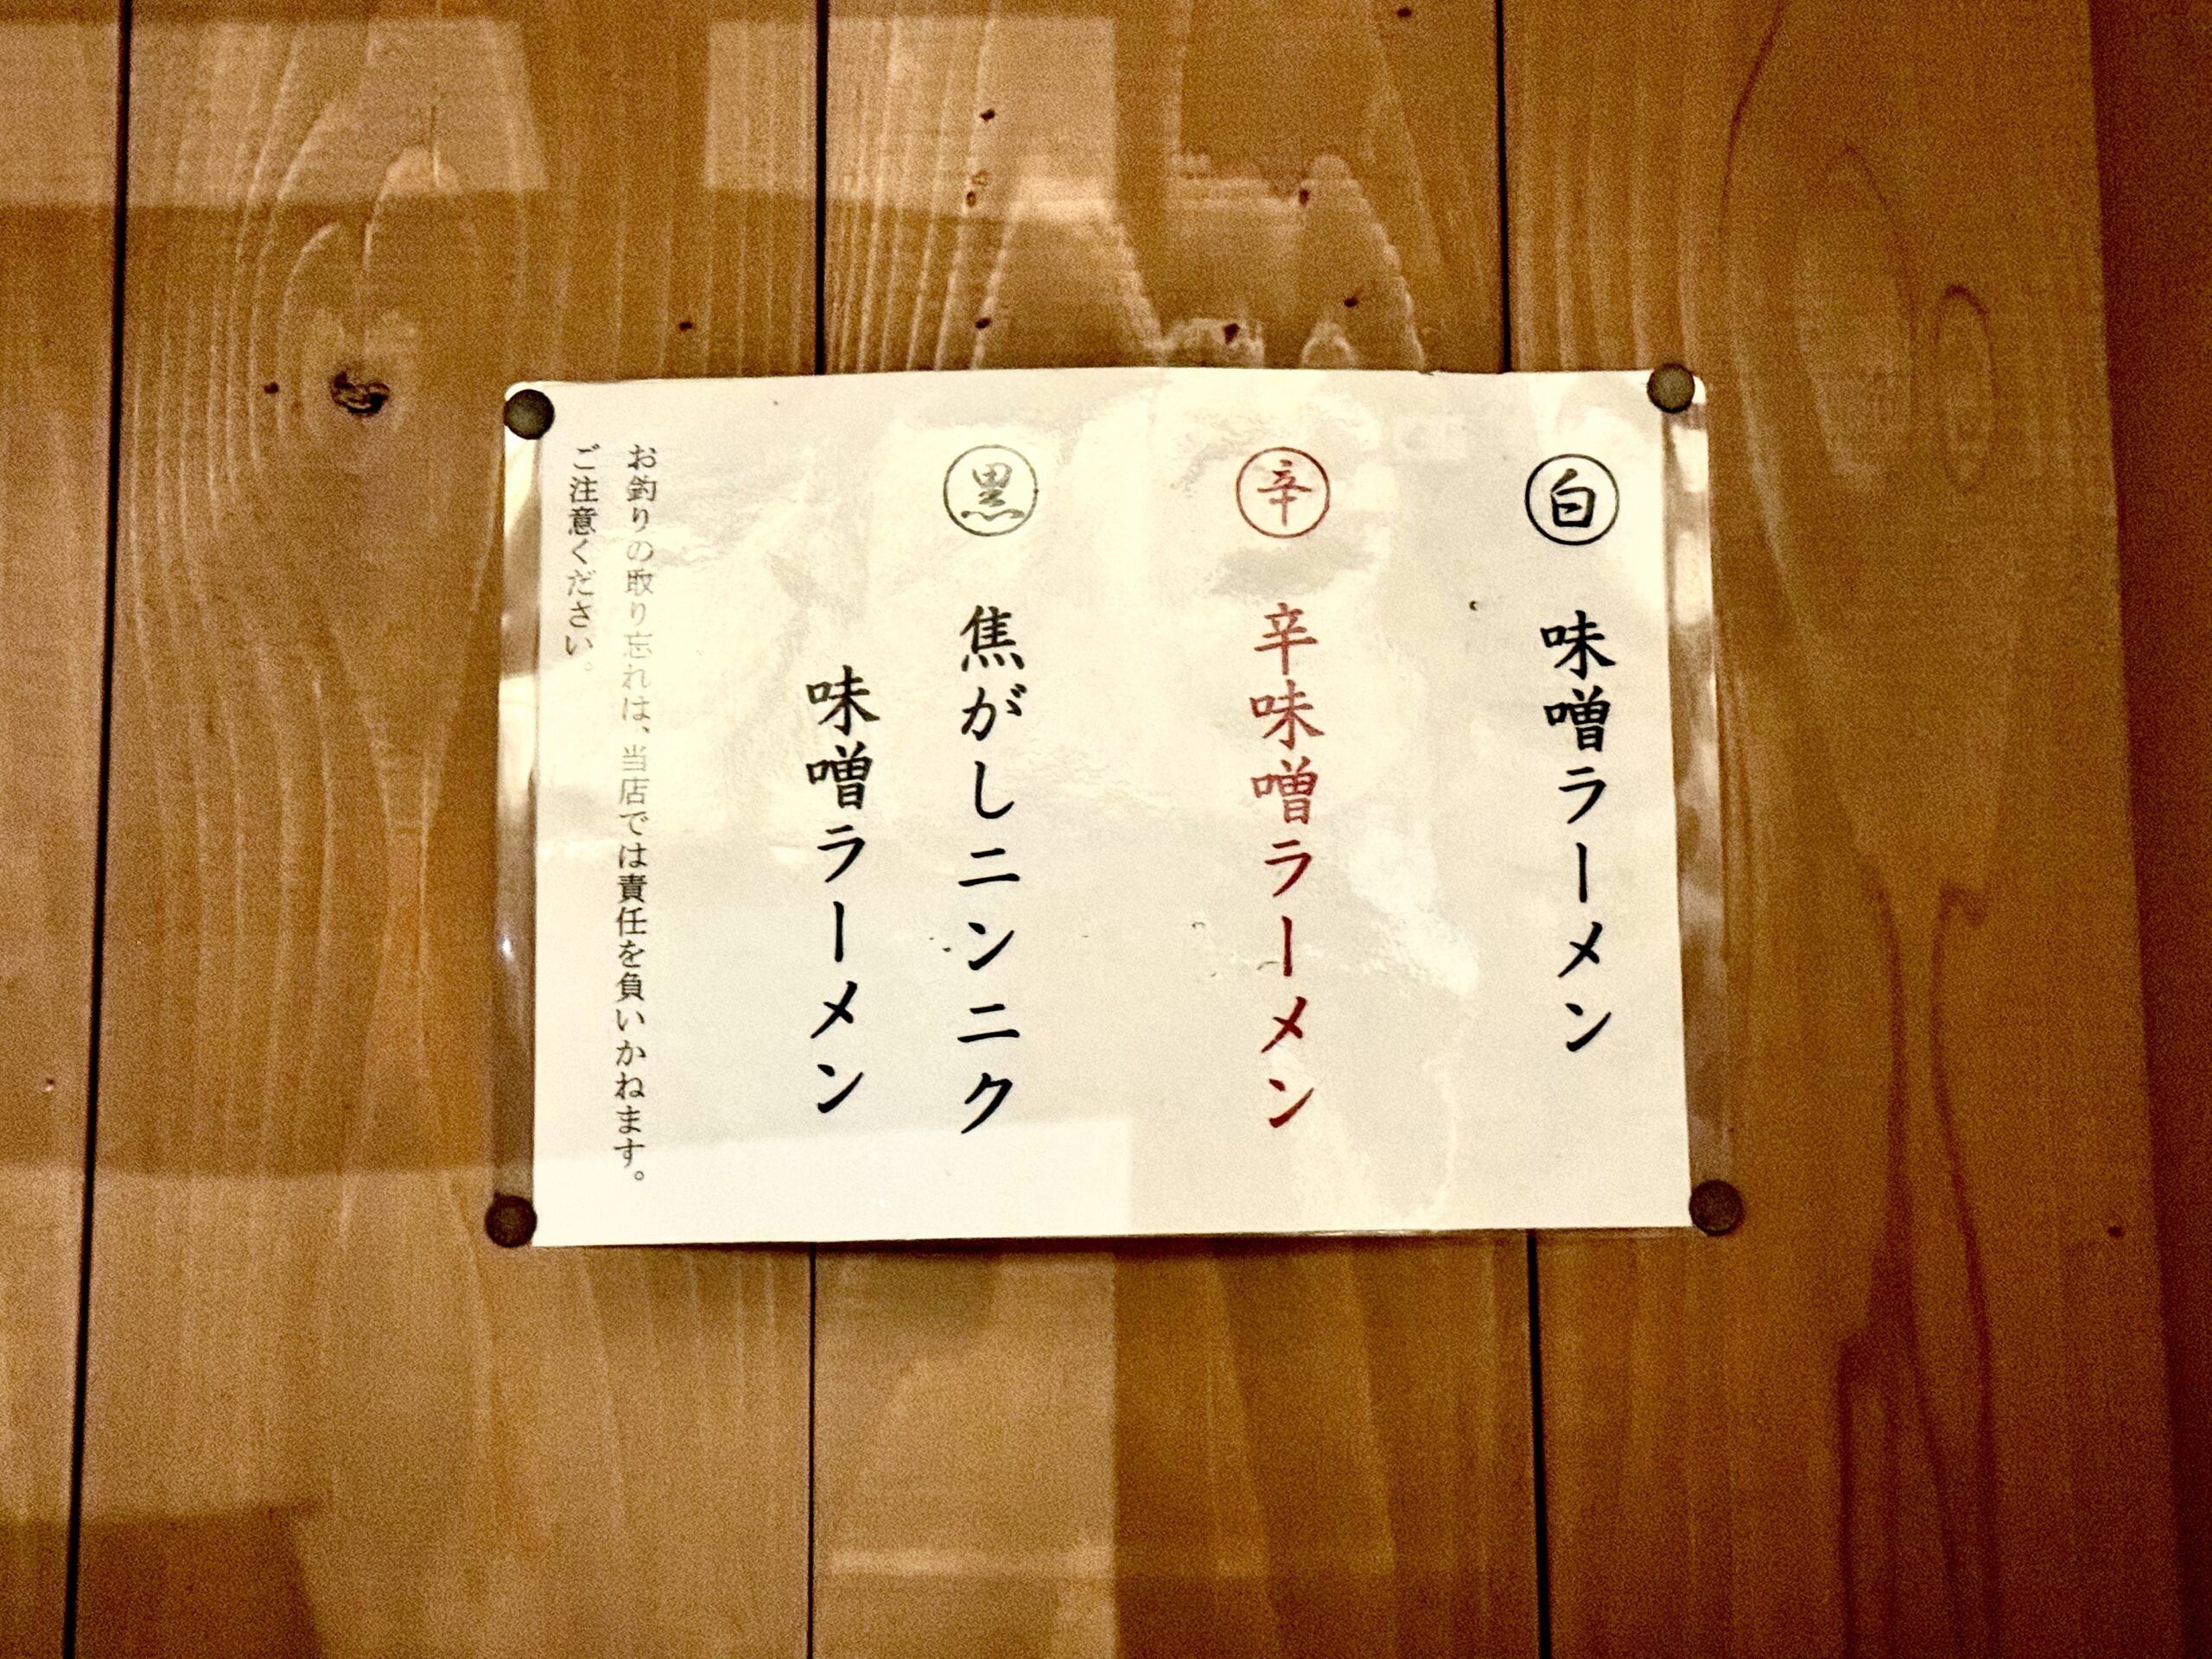 白 味噌ラーメン
辛 辛味噌ラーメン
黒 焦がしニンニク
味噌ラーメン
お釣りの取り忘れは、当店では責任を負いかねます。
ご注意ください。